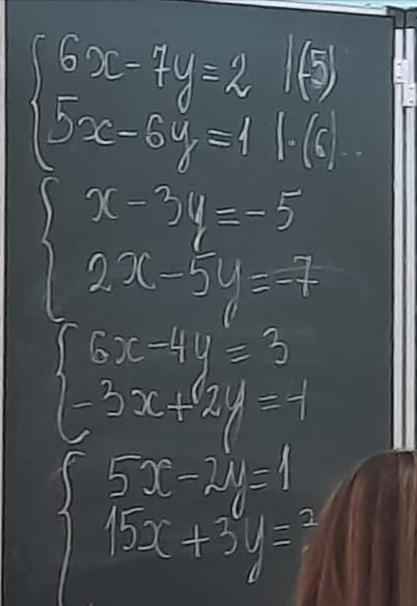 6x-7y=2 |(-5)
5x-6y=1 |·(6)
x-3y=-5
2x-5y=-7
6x-4y=3
-3x+2y=-1
5x-2y=1
15x+3y=